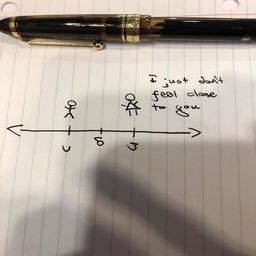 I just don't
feel close
to you